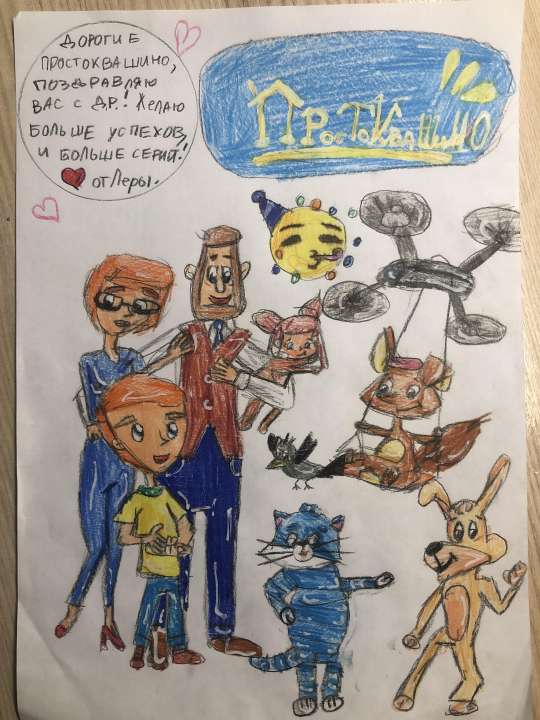 ДОРОГИЕ
ПРОСТОКВАШИНО,
ПОЗДРАВЛЯЮ
ВАС С Д.Р.! Желаю
БОЛЬШЕ УСПЕХОВ,
И БОЛЬШЕ СЕРИЙ!
от Леры.
ПРОСТОКВАШИНО